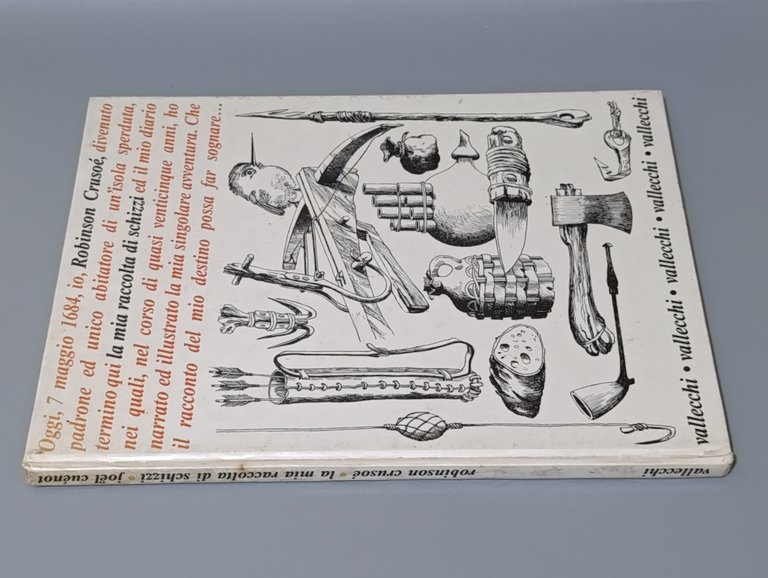 Oggi, 7 maggio 1684, io, Robinson Crusoé, divenuto
padrone ed unico abitatore di un'isola sperduta,
termino qui la mia raccolta di schizzi ed il mio diario
nei quali, nel corso di quasi venticinque anni, ho
narrato ed illustrato la mia singolare avventura. Che
il racconto del mio destino possa far sognare...
vallecchi • vallecchi • vallecchi • vallecchi • vallecchi
robinson crusoé • la mia raccolta di schizzi • joël cuénot
vallecchi